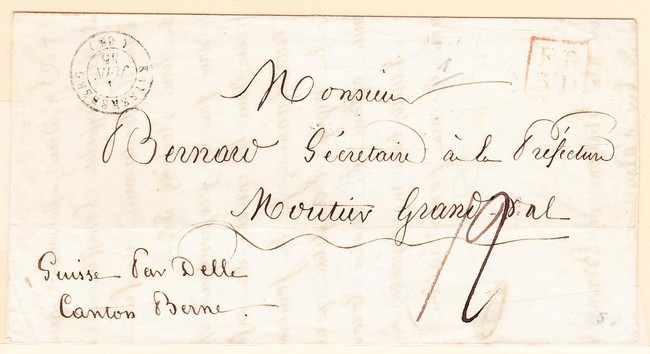 KAYSERSBERG
(68)
1
JUIN
45
F.R.
31
Monsieur
Bernard Sécretaire à la Préfecture
Moutier Grand-Val
12
Suisse Par Delle
Canton Berne.
5